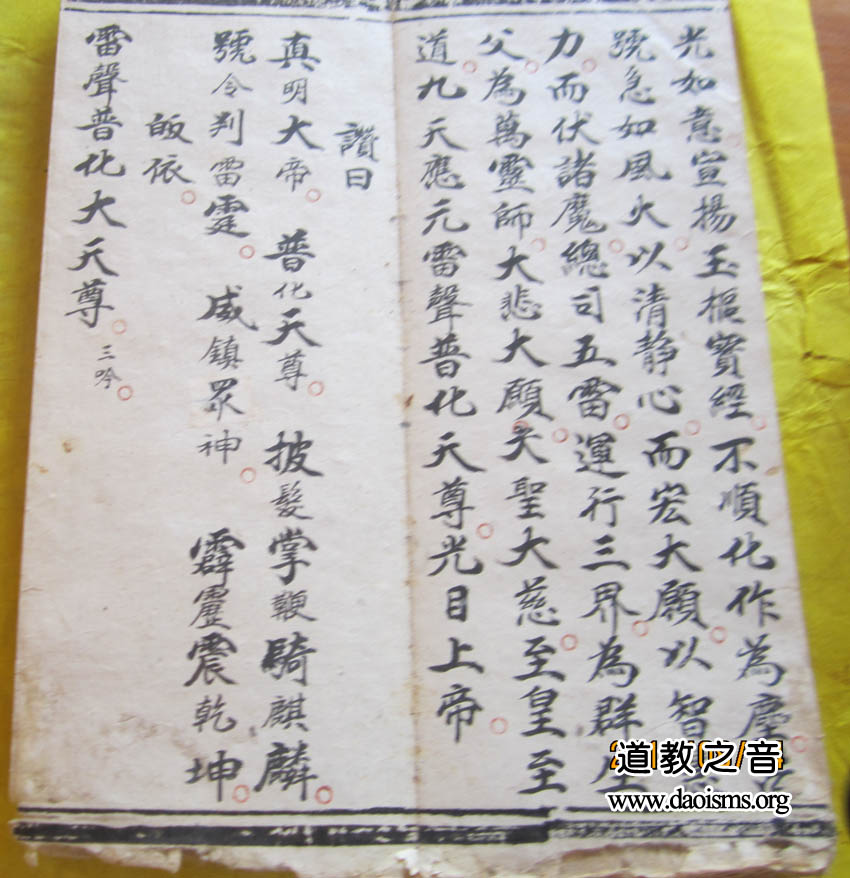 光如意宣揚玉樞寶經。不順化作為塵。
號急如風火。以清静心。而宏大願。以智
力。而伏諸魔。總司五雷。運行三界。為群生
父。為萬靈師。大悲大願。大聖大慈。至皇至
道。九天應元雷聲普化天尊。光目上帝。
讚曰
真明大帝。普化天尊。披髮掌鞭騎麒麟。
號令判雷霆。威鎮眾神。霹靂震乾坤。
皈依。
雷聲普化大天尊。三吟。
道教之音
www.daoisms.org